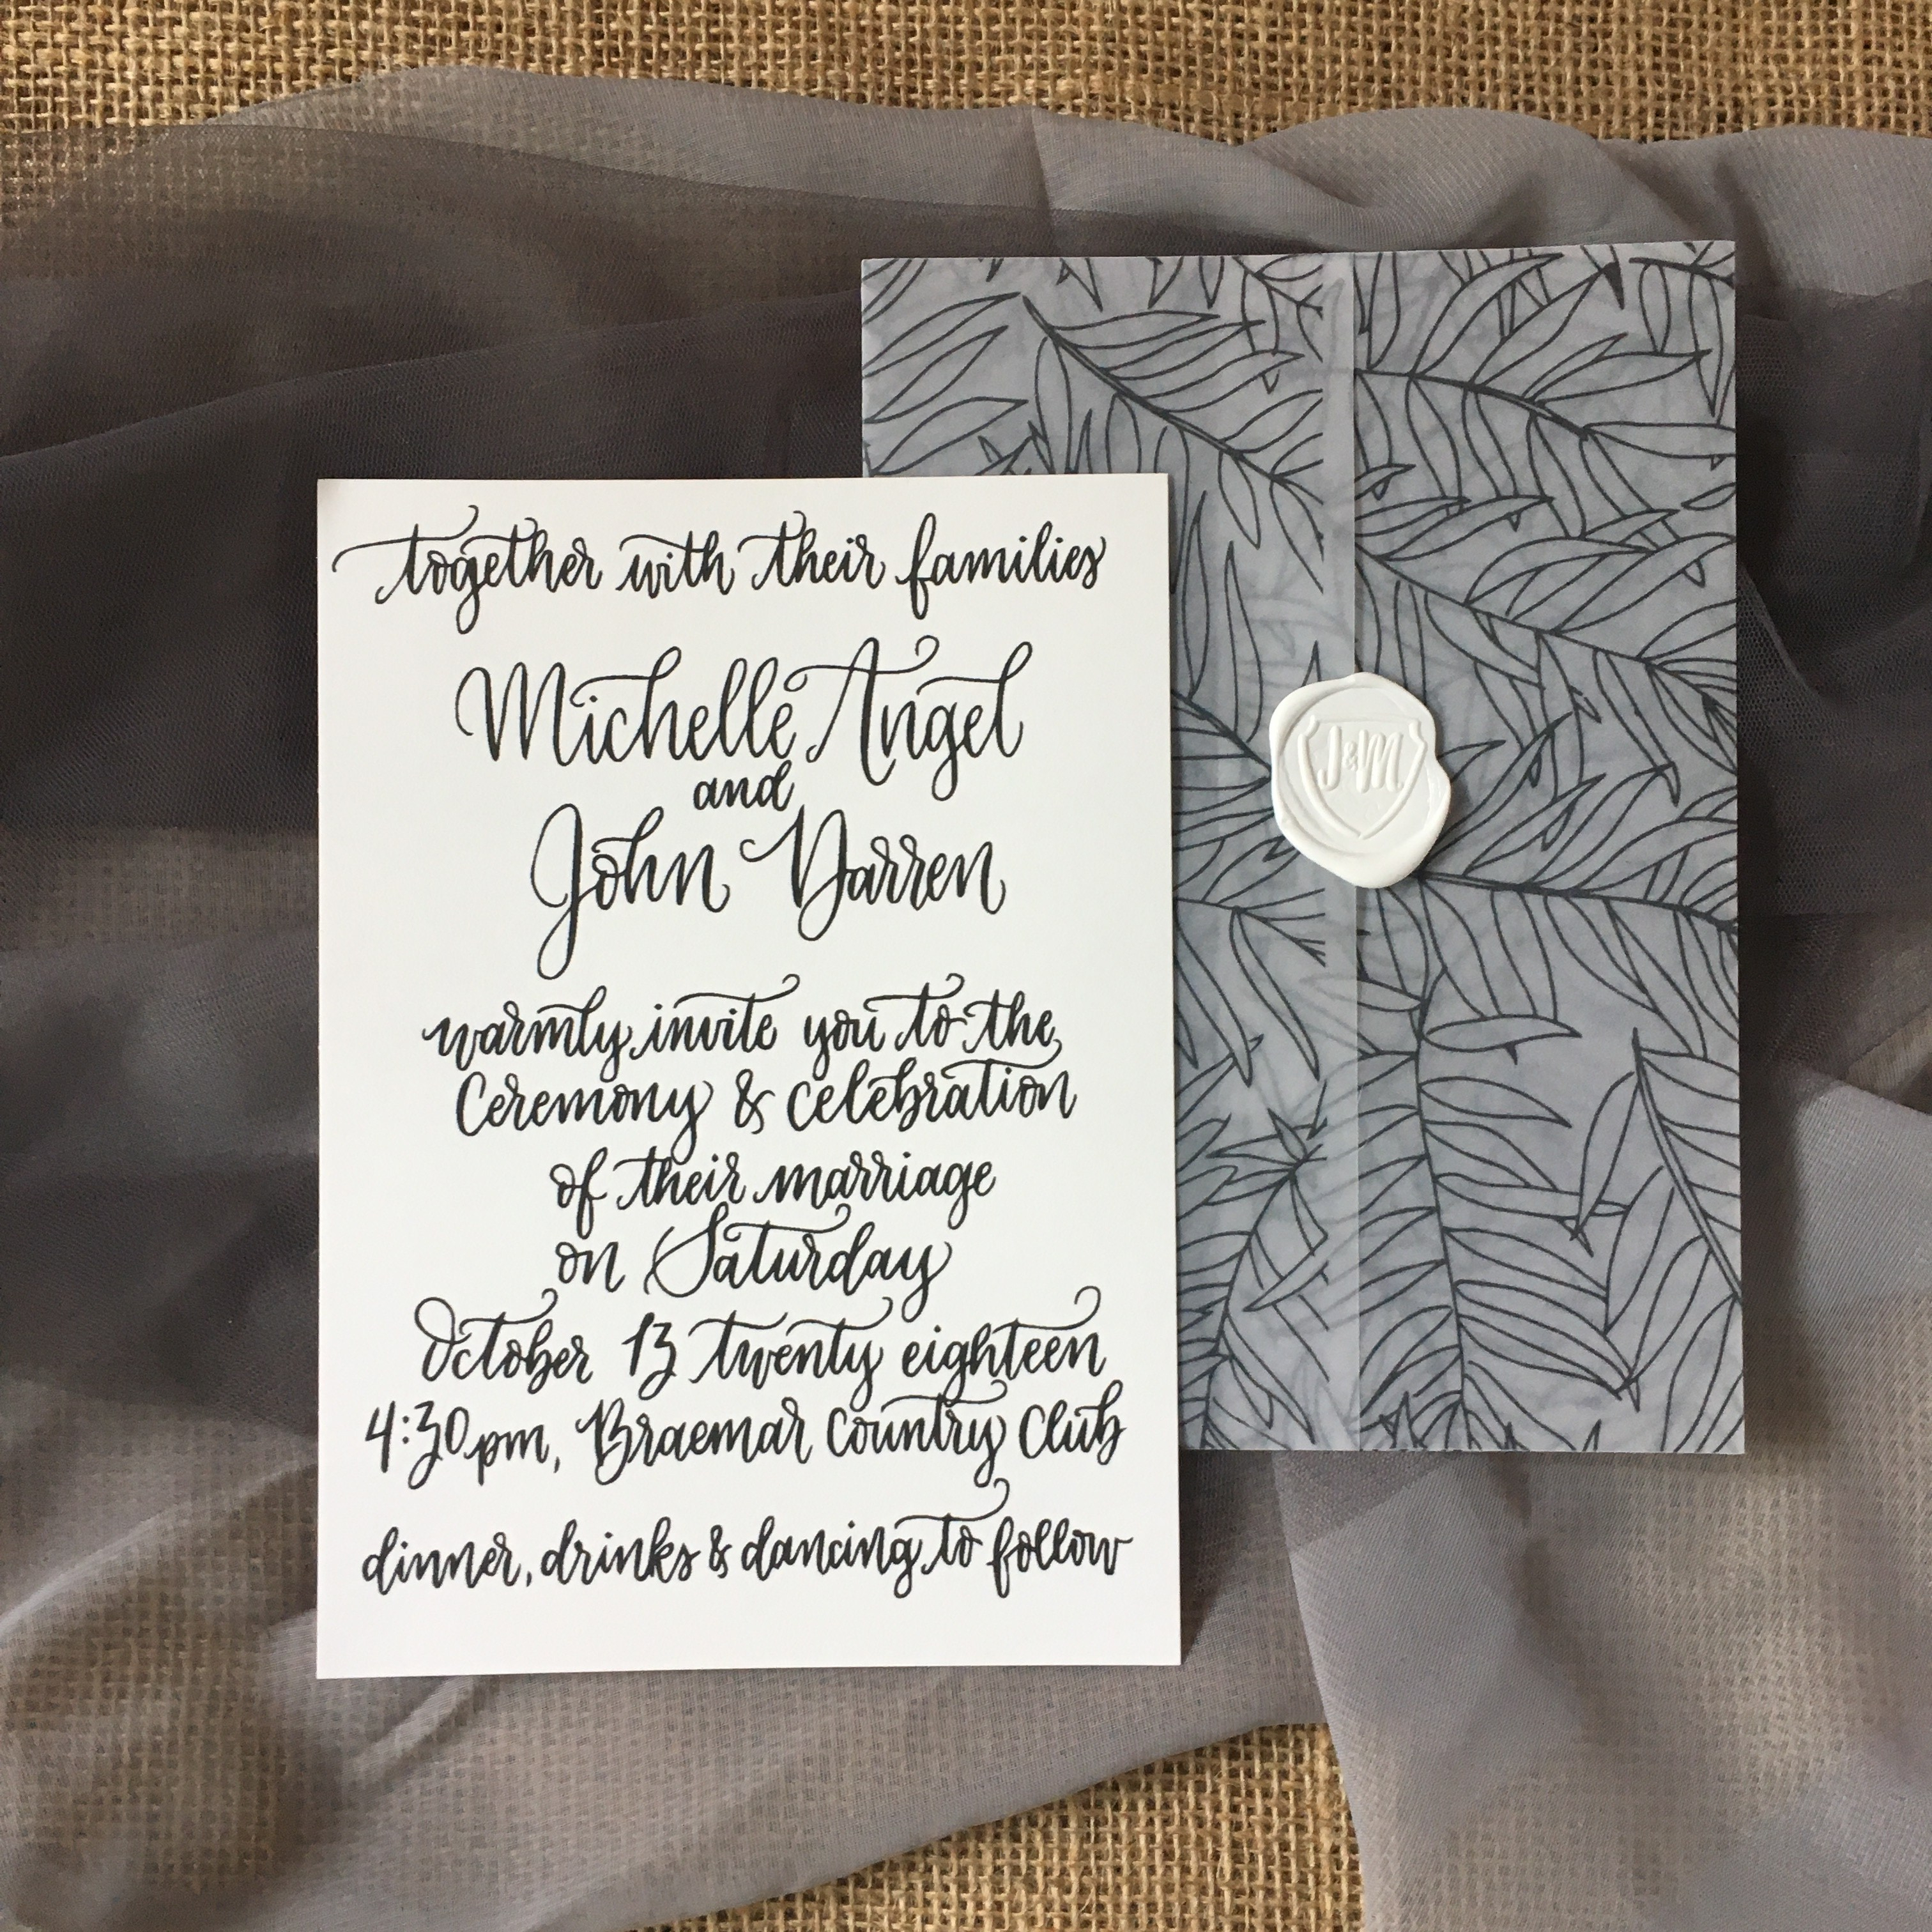 together with their families
Michelle Angel
and
John Darren
warmly invite you to the
Ceremony & celebration
of their marriage
on Saturday
October 13 twenty eighteen
4:30pm, Braemar Country Club
dinner, drinks & dancing to follow
J&M